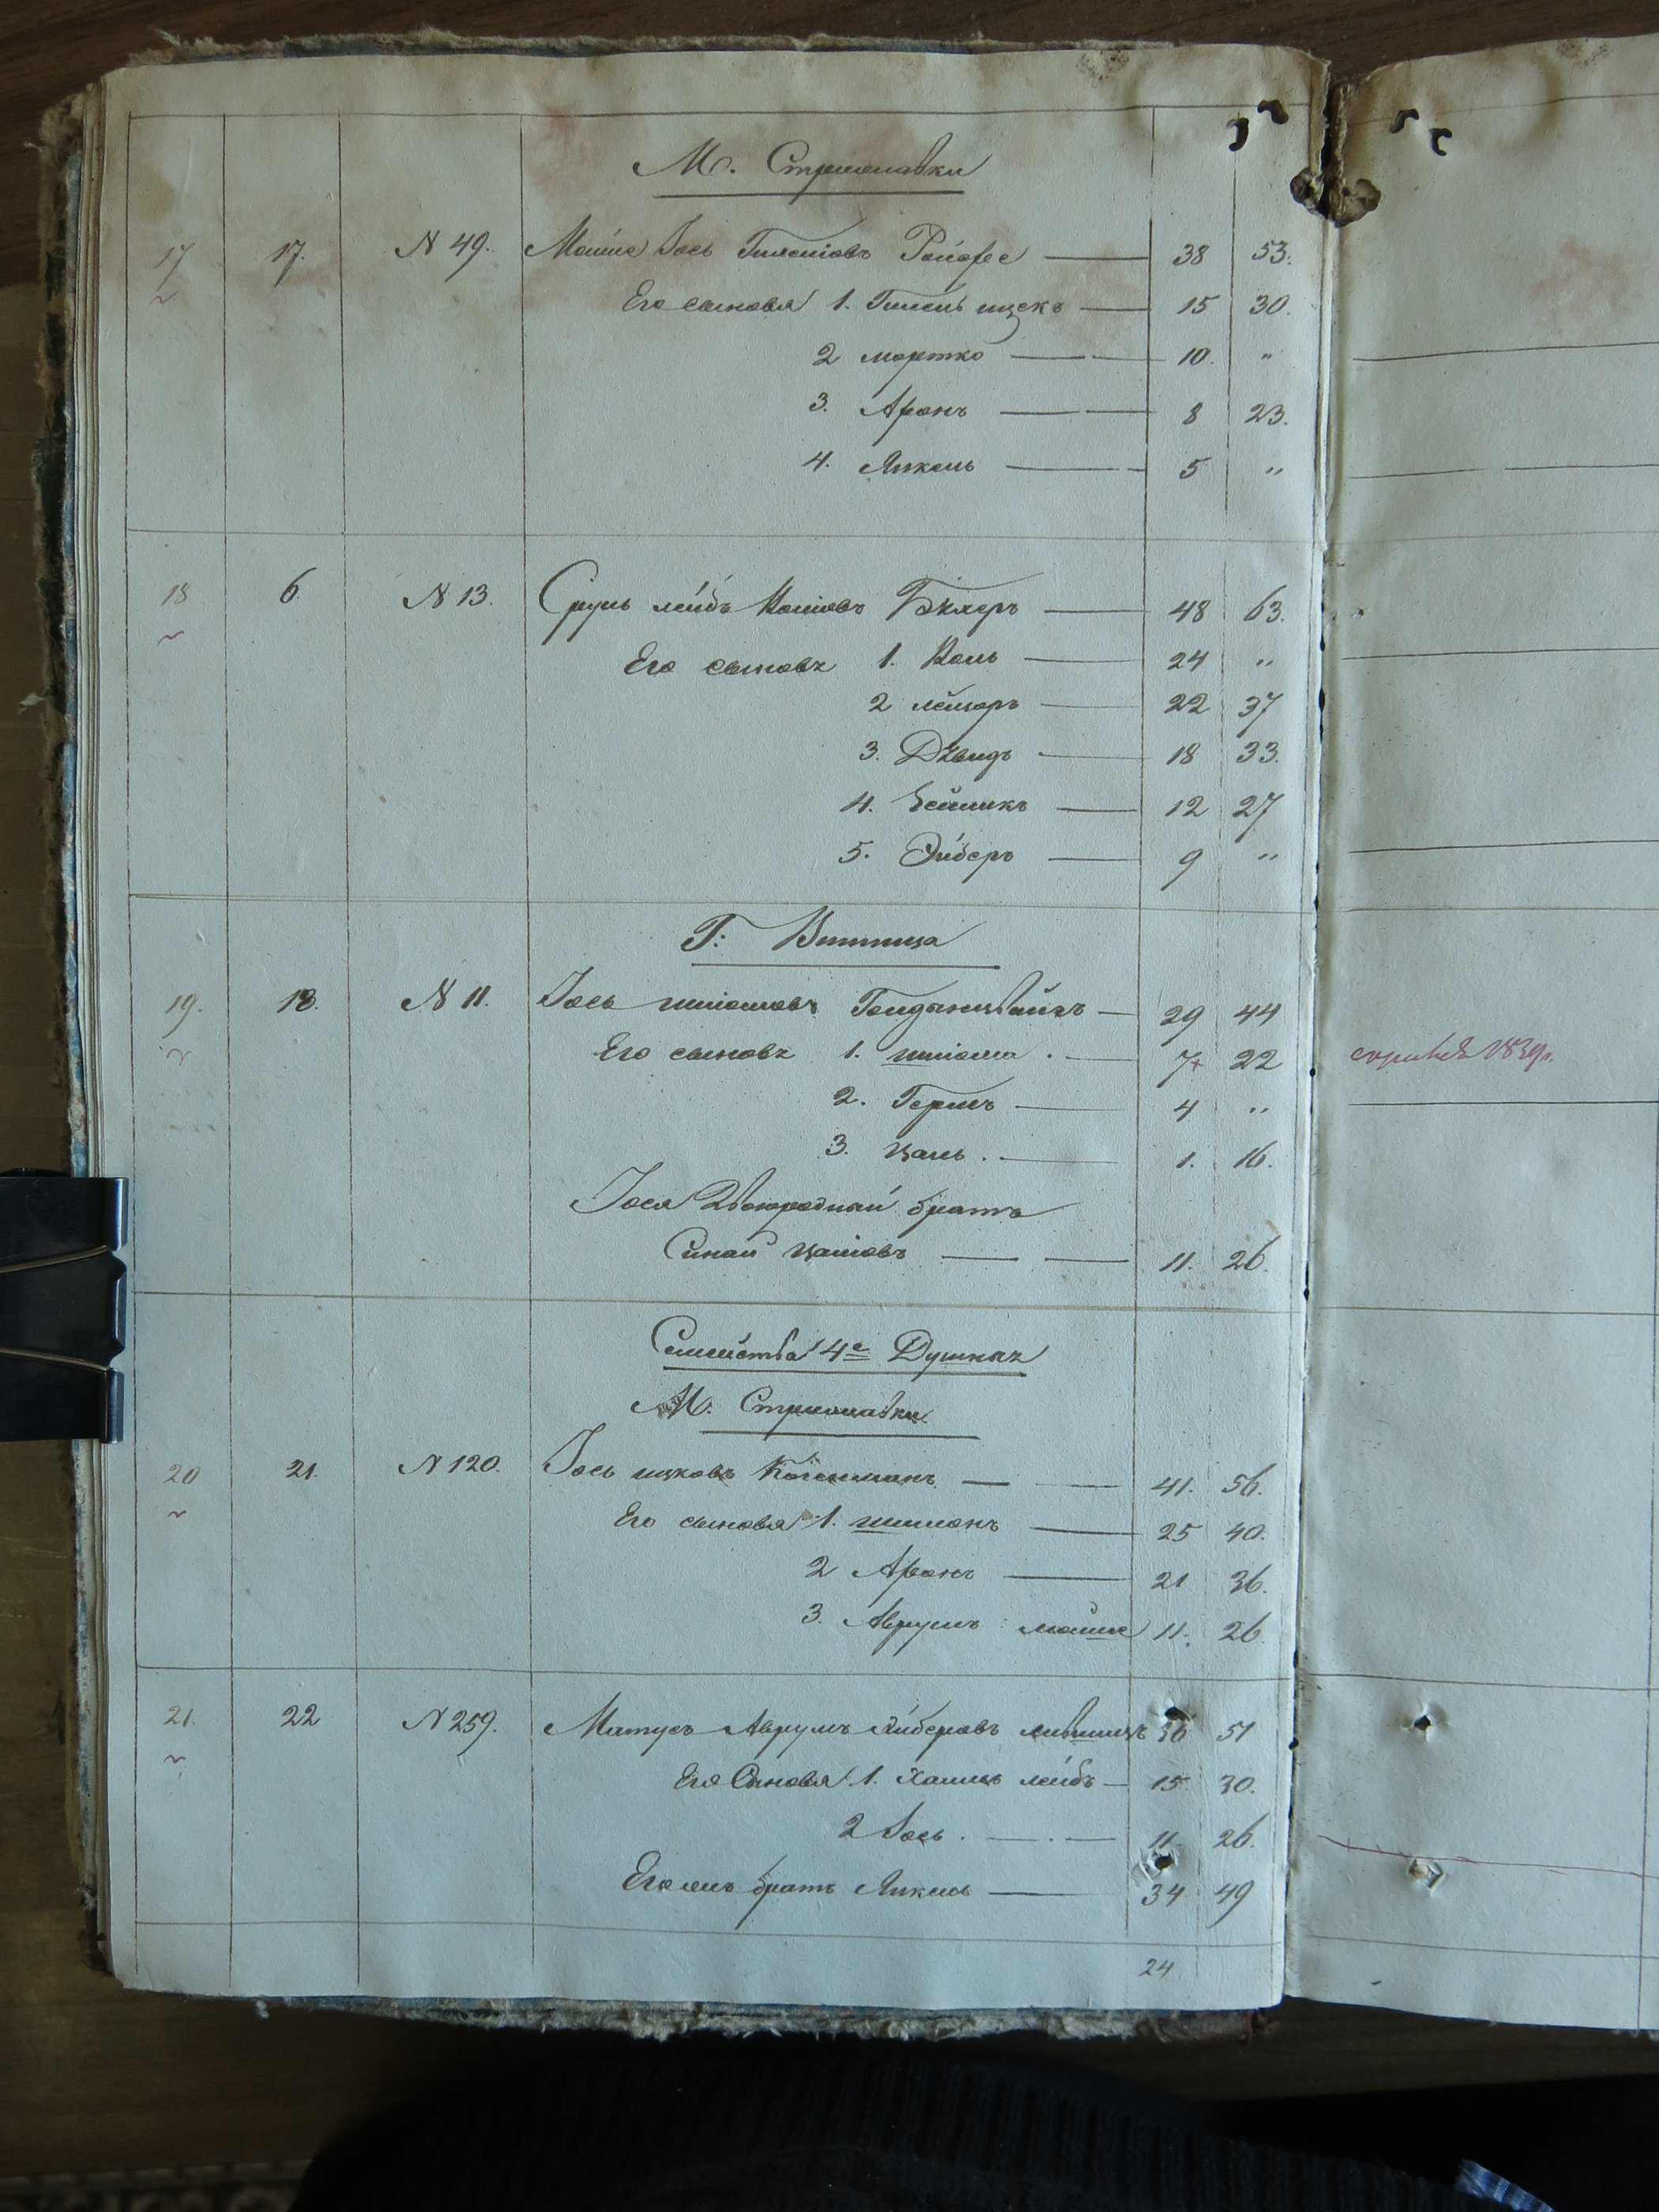 М. Стрижавки
17 17. N 49. Мошко Іось Гилелiовъ Ройфес — 38 53.
Его сыновья 1. Гилель ицекъ — 15 30.
2 мортко — 10. "
3. Аронъ — 8 23.
4. Янкель — 5 "
18 6. N 13. Сруль лейбъ Келiовъ — 48 63.
Его сыновя 1. Кель — 24 "
2 лейзоръ — 22 37
3. Давидъ — 18 33.
4. Зейликъ — 12 27
5. Эйберъ — 9 "
Г: Винница
19. 18. N 11. Іось шліомовъ — 29 44
Его сыновя 1. шліома . — 7+ 22
2. Гершъ — 4 "
3. Цаль . — 1. 16.
Іося Двоюродный братъ
Синай Цаліовъ — 11. 26.
Семейства 4е Душныя
М. Стрижавки.
20 21. N 120. Іось ицковъ — 41. 56.
Его сыновья 1. шимонъ — 25 40.
2 Аронъ — 21 36.
3. Аврумъ мошко 11. 26.
21. 22 N 259. Матусъ Аврумъ Лившицъ 36 51
Его Сыновья 1. Хаимъ лейбъ — 15 30.
2 Іось . — . — 11 26.
братъ Янкель — 34 49
24